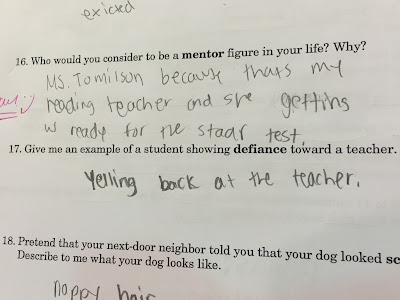 exicted
16. Who would you consider to be a mentor figure in your life? Why?
Ms. Tomilson because thats my
reading teacher and she getting
us ready for the staar test.
17. Give me an example of a student showing defiance toward a teacher.
Yelling back at the teacher.
18. Pretend that your next-door neighbor told you that your dog looked
Describe to me what your dog looks like.
nappy hair